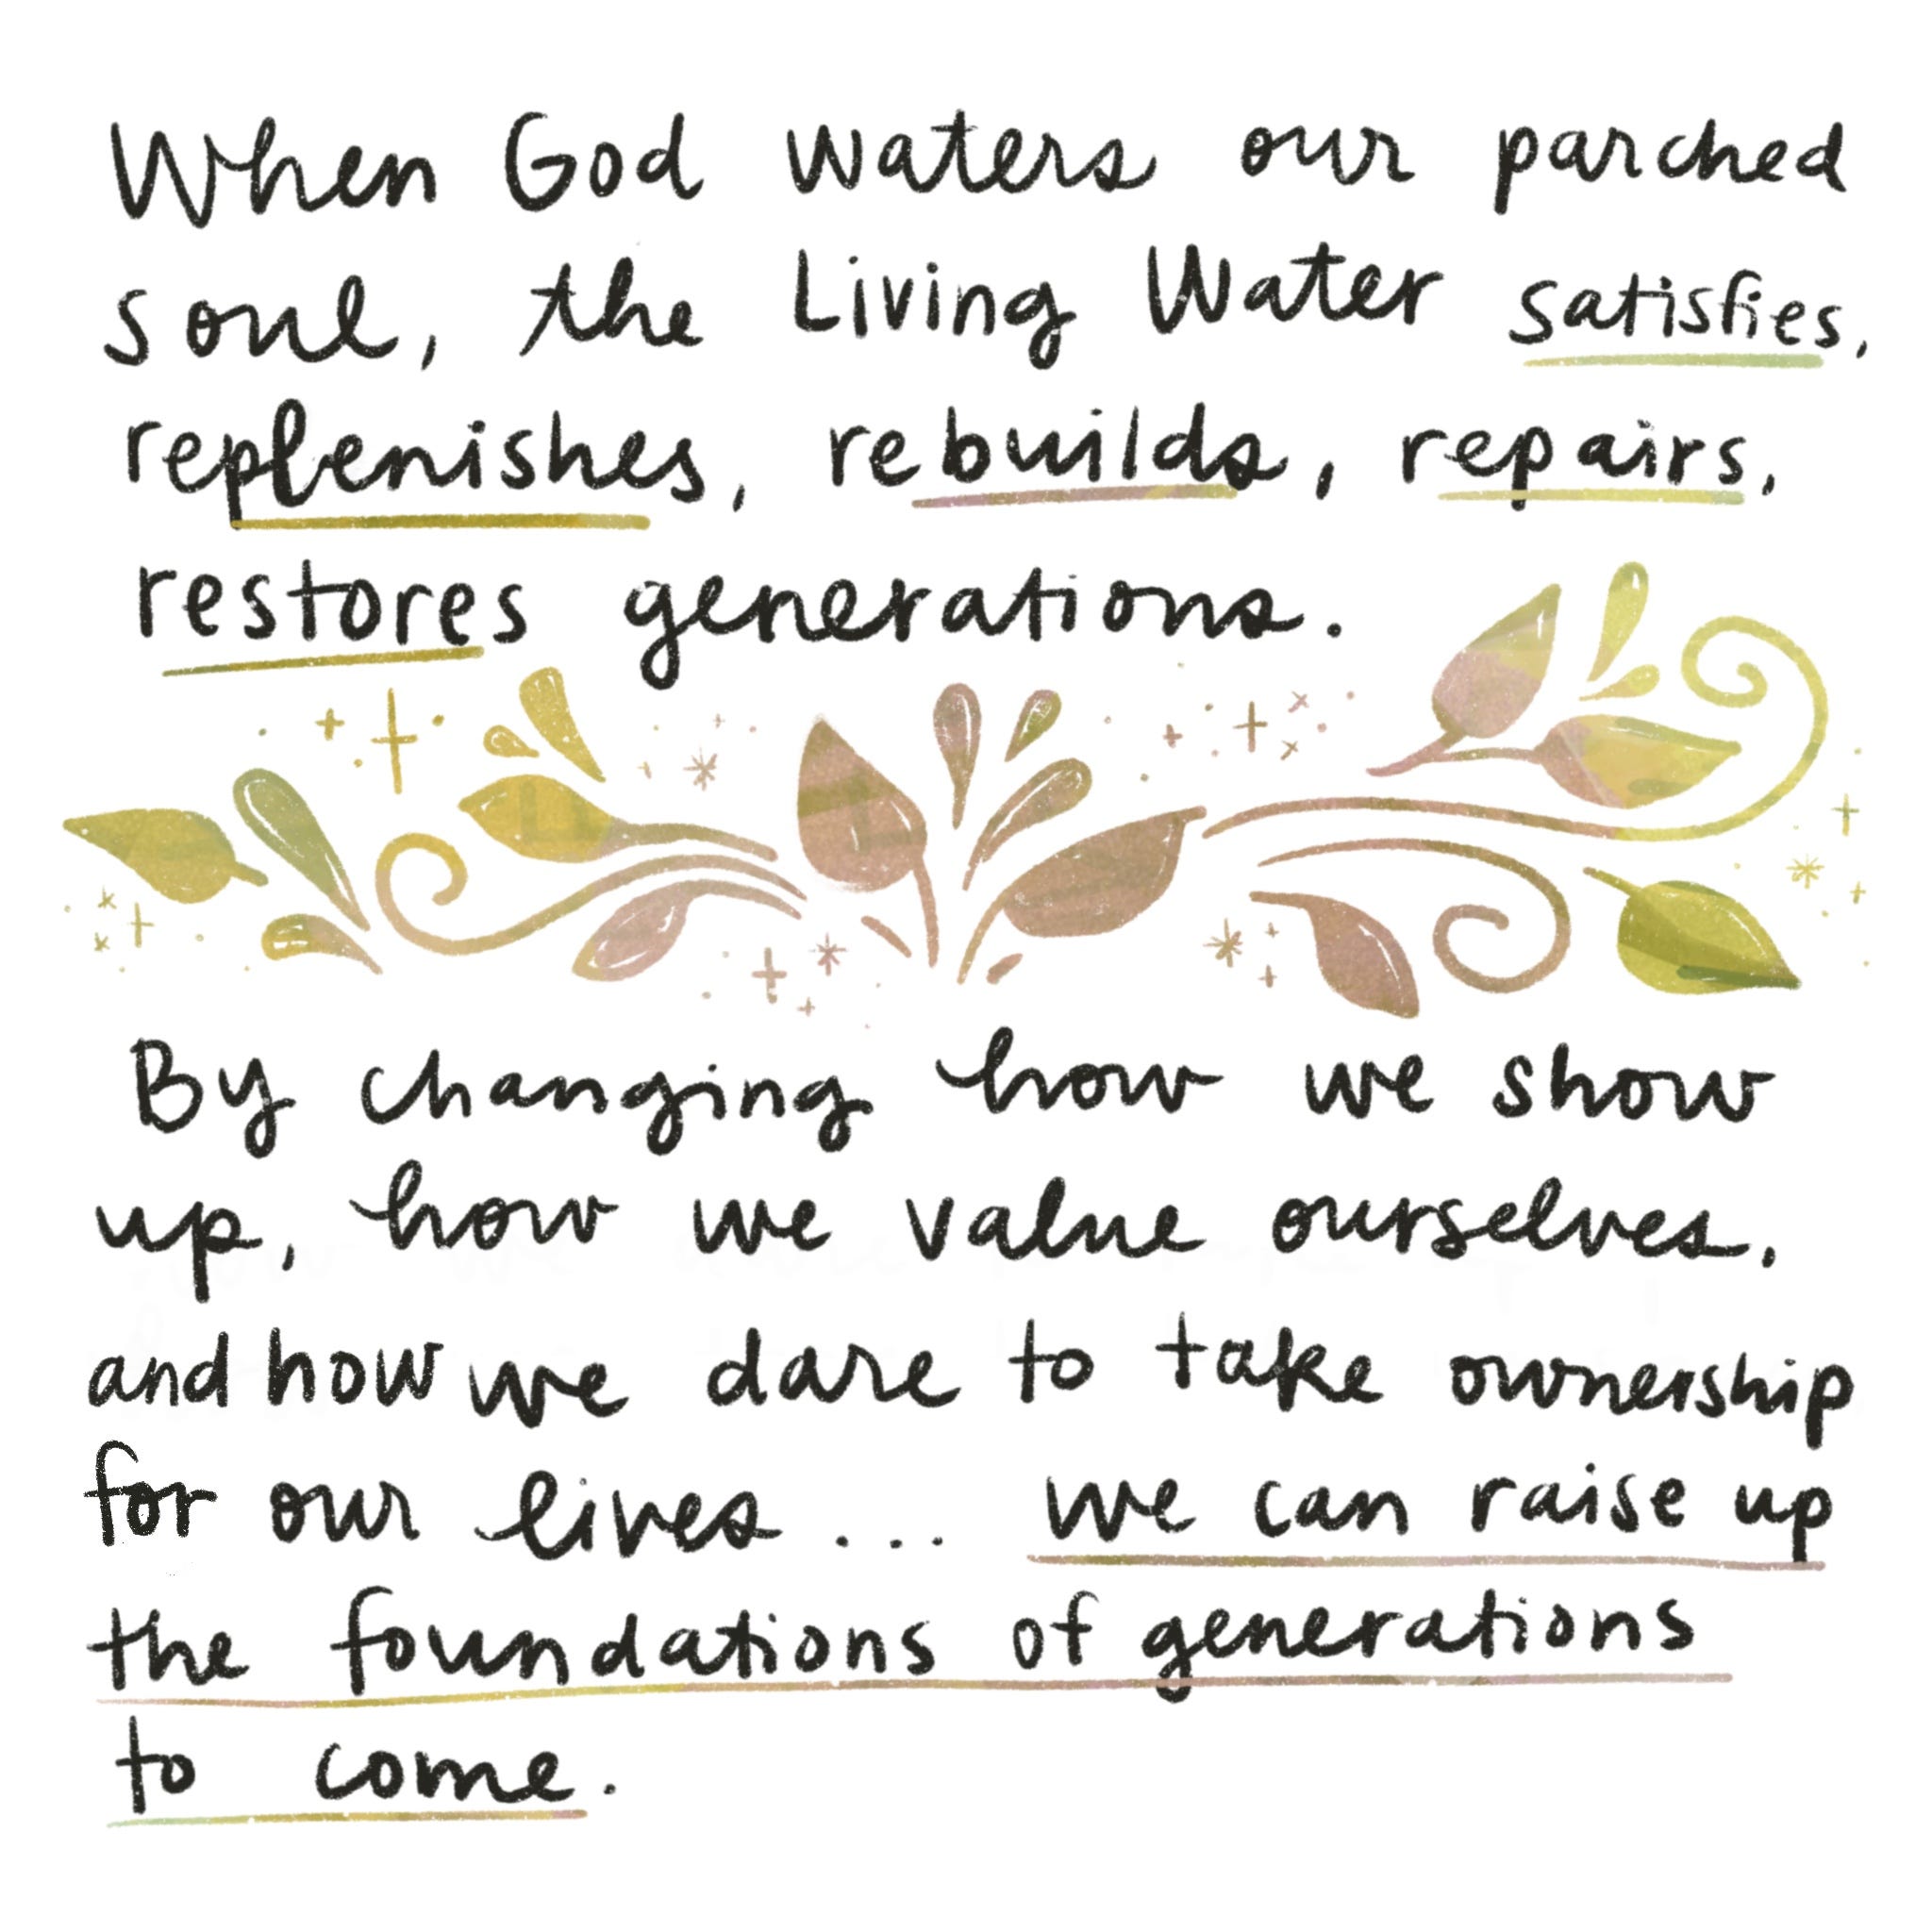 When God waters our parched
soul, the Living Water satisfies,
replenishes, rebuilds, repairs,
restores generations.
By changing how we show
up, how we value ourselves,
and how we dare to take ownership
for our lives... we can raise up
the foundations of generations
to come.